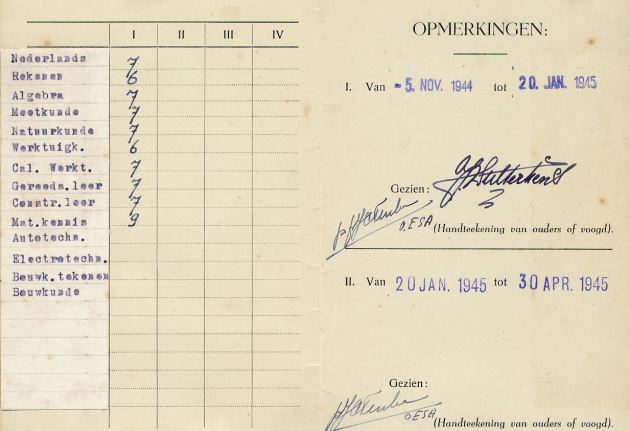 I II III IV
Nederlands 7
Rekenen 6
Algebra 7
Meetkunde 7
Natuurkunde 7
Werktuigk. 6
Cal. Werkt. 7
Gereeds.leer 7
Constr.leer 7
Mat.kennis 9
Autotechn.
Electrotechn.
Bouwk.tekenen
Bouwkunde
OPMERKINGEN:
I. Van -5. NOV. 1944 tot 20. JAN. 1945
Gezien:
(Handteekening van ouders of voogd).
II. Van 20 JAN. 1945 tot 30 APR. 1945
Gezien:
(Handteekening van ouders of voogd).